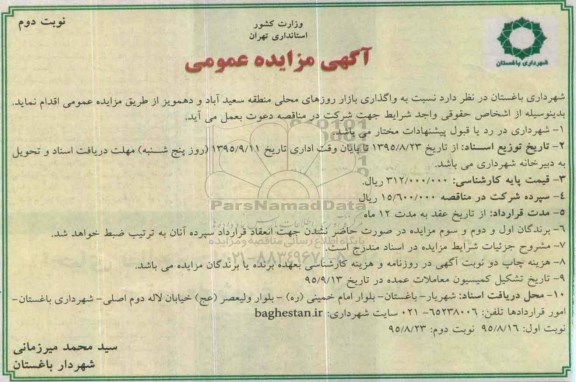 نوبت دوم
وزارت کشور
استانداری تهران
شهرداری باغستان
آگهی مزایده عمومی
شهرداری باغستان در نظر دارد نسبت به واگذاری بازار روزهای محلی منطقه سعید آباد و دهمویز از طریق مزایده عمومی اقدام نماید.
بدینوسیله از اشخاص حقوقی واجد شرایط جهت شرکت در مناقصه دعوت بعمل می آید.
۱- شهرداری در رد یا قبول پیشنهادات مختار می باشد.
۲- تاریخ توزیع اسناد: از تاریخ ۱۳۹۵/۸/۲۳ تا پایان وقت اداری تاریخ ۱۳۹۵/۹/۱۱ (روز پنج شنبه) مهلت دریافت اسناد و تحویل
به دبیرخانه شهرداری می باشد.
۳- قیمت پایه کارشناسی: ۳۱۲/۰۰۰/۰۰۰ ریال.
۴- سپرده شرکت در مناقصه ۱۵/۶۰۰/۰۰۰ ریال
۵- مدت قرارداد: از تاریخ عقد به مدت ۱۲ ماه
۶- برندگان اول و دوم و سوم مزایده در صورت حاضر نشدن جهت انعقاد قرارداد سپرده آنان به ترتیب ضبط خواهد شد.
۷- مشروح جزئیات شرایط مزایده در اسناد مندرج است
۸- هزینه چاپ دو نوبت آگهی در روزنامه و هزینه کارشناسی بعهده برنده یا برندگان مزایده می باشد.
۹- تاریخ تشکیل کمیسیون معاملات عمده در تاریخ ۹۵/۹/۱۳
۱۰- محل دریافت اسناد: شهریار- باغستان- بلوار امام خمینی (ره) - بلوار ولیعصر (عج) خیابان لاله دوم اصلی- شهرداری باغستان-
امور قراردادها تلفن: ۶۵۲۳۸۰۰۶- ۰۲۱ سایت شهرداری: baghestan.ir
نوبت اول: ۹۵/۸/۱۶ نوبت دوم: ۹۵/۸/۲۳
سید محمد میرزمانی
شهردار باغستان
ParsNamadData